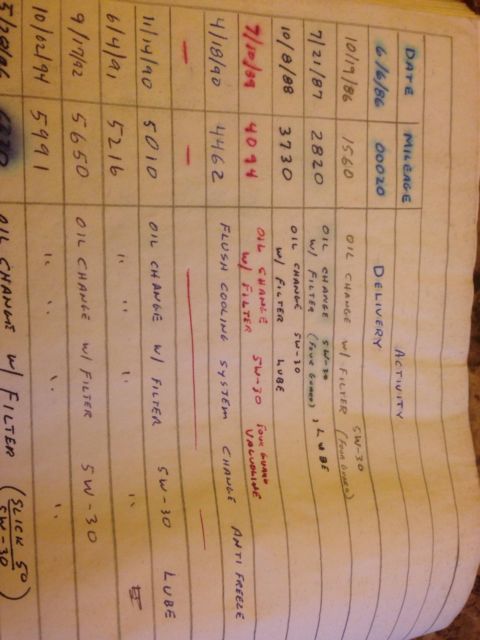 DATE MILEAGE ACTIVITY
6/6/86 00020 DELIVERY
10/19/86 1560 OIL CHANGE W/ FILTER 5W-30 (FOUR GUARD)
7/21/87 2820 OIL CHANGE 5W-30
W/ FILTER (FOUR GUARD), LUBE
10/8/88 3730 OIL CHANGE 5W-30
W/ FILTER LUBE
7/10/89 4094 OIL CHANGE 5W-30 FOUR GUARD
W/ FILTER VALVOLINE
4/18/90 4462 FLUSH COOLING SYSTEM CHANGE ANTI FREEZE
— — —
11/14/90 5010 OIL CHANGE W/ FILTER 5W-30 LUBE
6/4/91 5216 " " " "
9/17/92 5650 OIL CHANGE W/ FILTER 5W-30
10/02/94 5991 " " "
OIL CHANGE W/ FILTER (SLICK 50
5W-30)